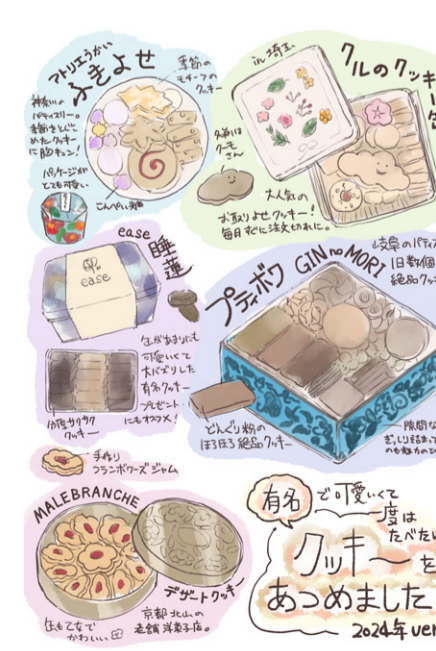 アトリエうかい
ふきよせ
季節の
モチーフの
クッキー
神奈川の
パティスリー。
季節をとじこ
めたクッキー
に胸キュン!
パッケージが
とても可愛い
こんぺい糖
in 埼玉
クルのクッキー
名前は
クーモ
さん
大人気の
お取りよせクッキー!
毎月すぐに注文切れに。
ease
睡蓮
ease
缶があまりにも
可愛いくて
大バズりした
有名クッキー
プレゼント
にもオススメ!
サクサク
クッキー
プティボワ GIN no MORI
岐阜のパティス
1日数個
絶品クッ
どんぐり粉の
ほろほろ絶品クッキー
隙間な
ぎっしり詰まって
のも魅力のひ
手作り
フランボワーズジャム
MALEBRANCHE
デザートクッキー
缶もてなで
かわいい
京都 北山の
老舗 洋菓子店。
有名
で可愛いくて
一度は
たべたい
クッキーを
あつめました
2024年 ver